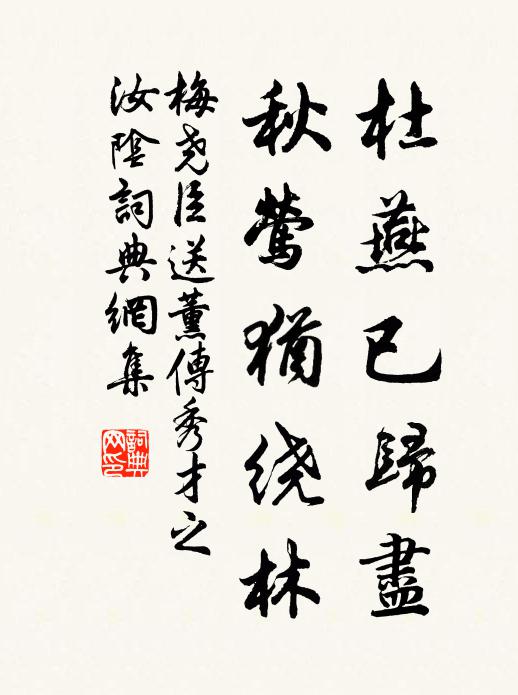 杜燕已歸盡
秋鶯猶绕林
梅尧臣送薰傳秀才之
汝陰詞典網集
詞典网印